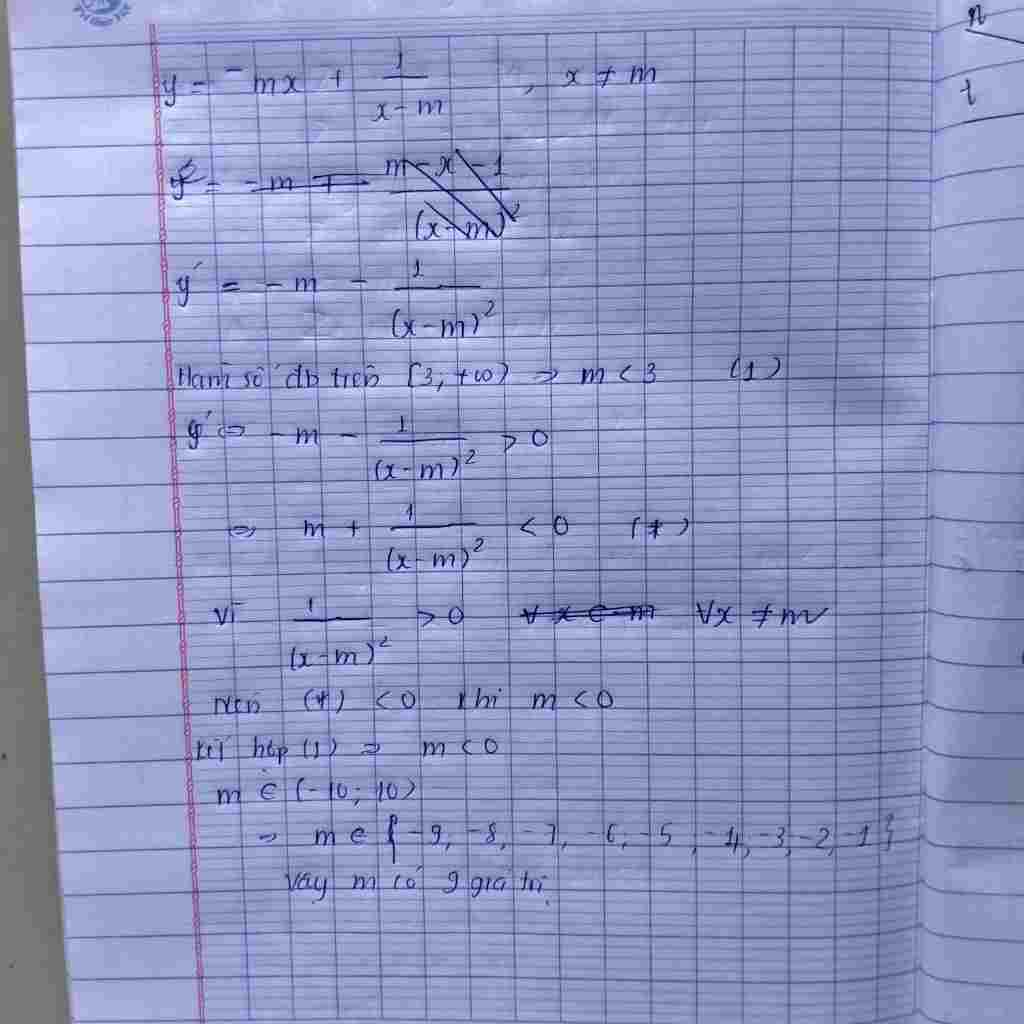 y = -mx + 1/(x-m) , x ≠ m
y' = -m + (m-x-1)/(x-m)²
y' = -m - 1/(x-m)²
Hàm số đb trên [3; +∞) ⇒ m < 3 (1)
y' ⇔ -m - 1/(x-m)² > 0
⇔ m + 1/(x-m)² < 0 (*)
Vì 1/(x-m)² > 0 ∀x ∈ m ∀x ≠ m
Nên (*) < 0 khi m < 0
Kết hợp (1) ⇒ m < 0
m ∈ (-10; 10)
⇒ m ∈ { -9, -8, -7, -6, -5, -4, -3, -2, -1 }
Vậy m có 9 giá trị